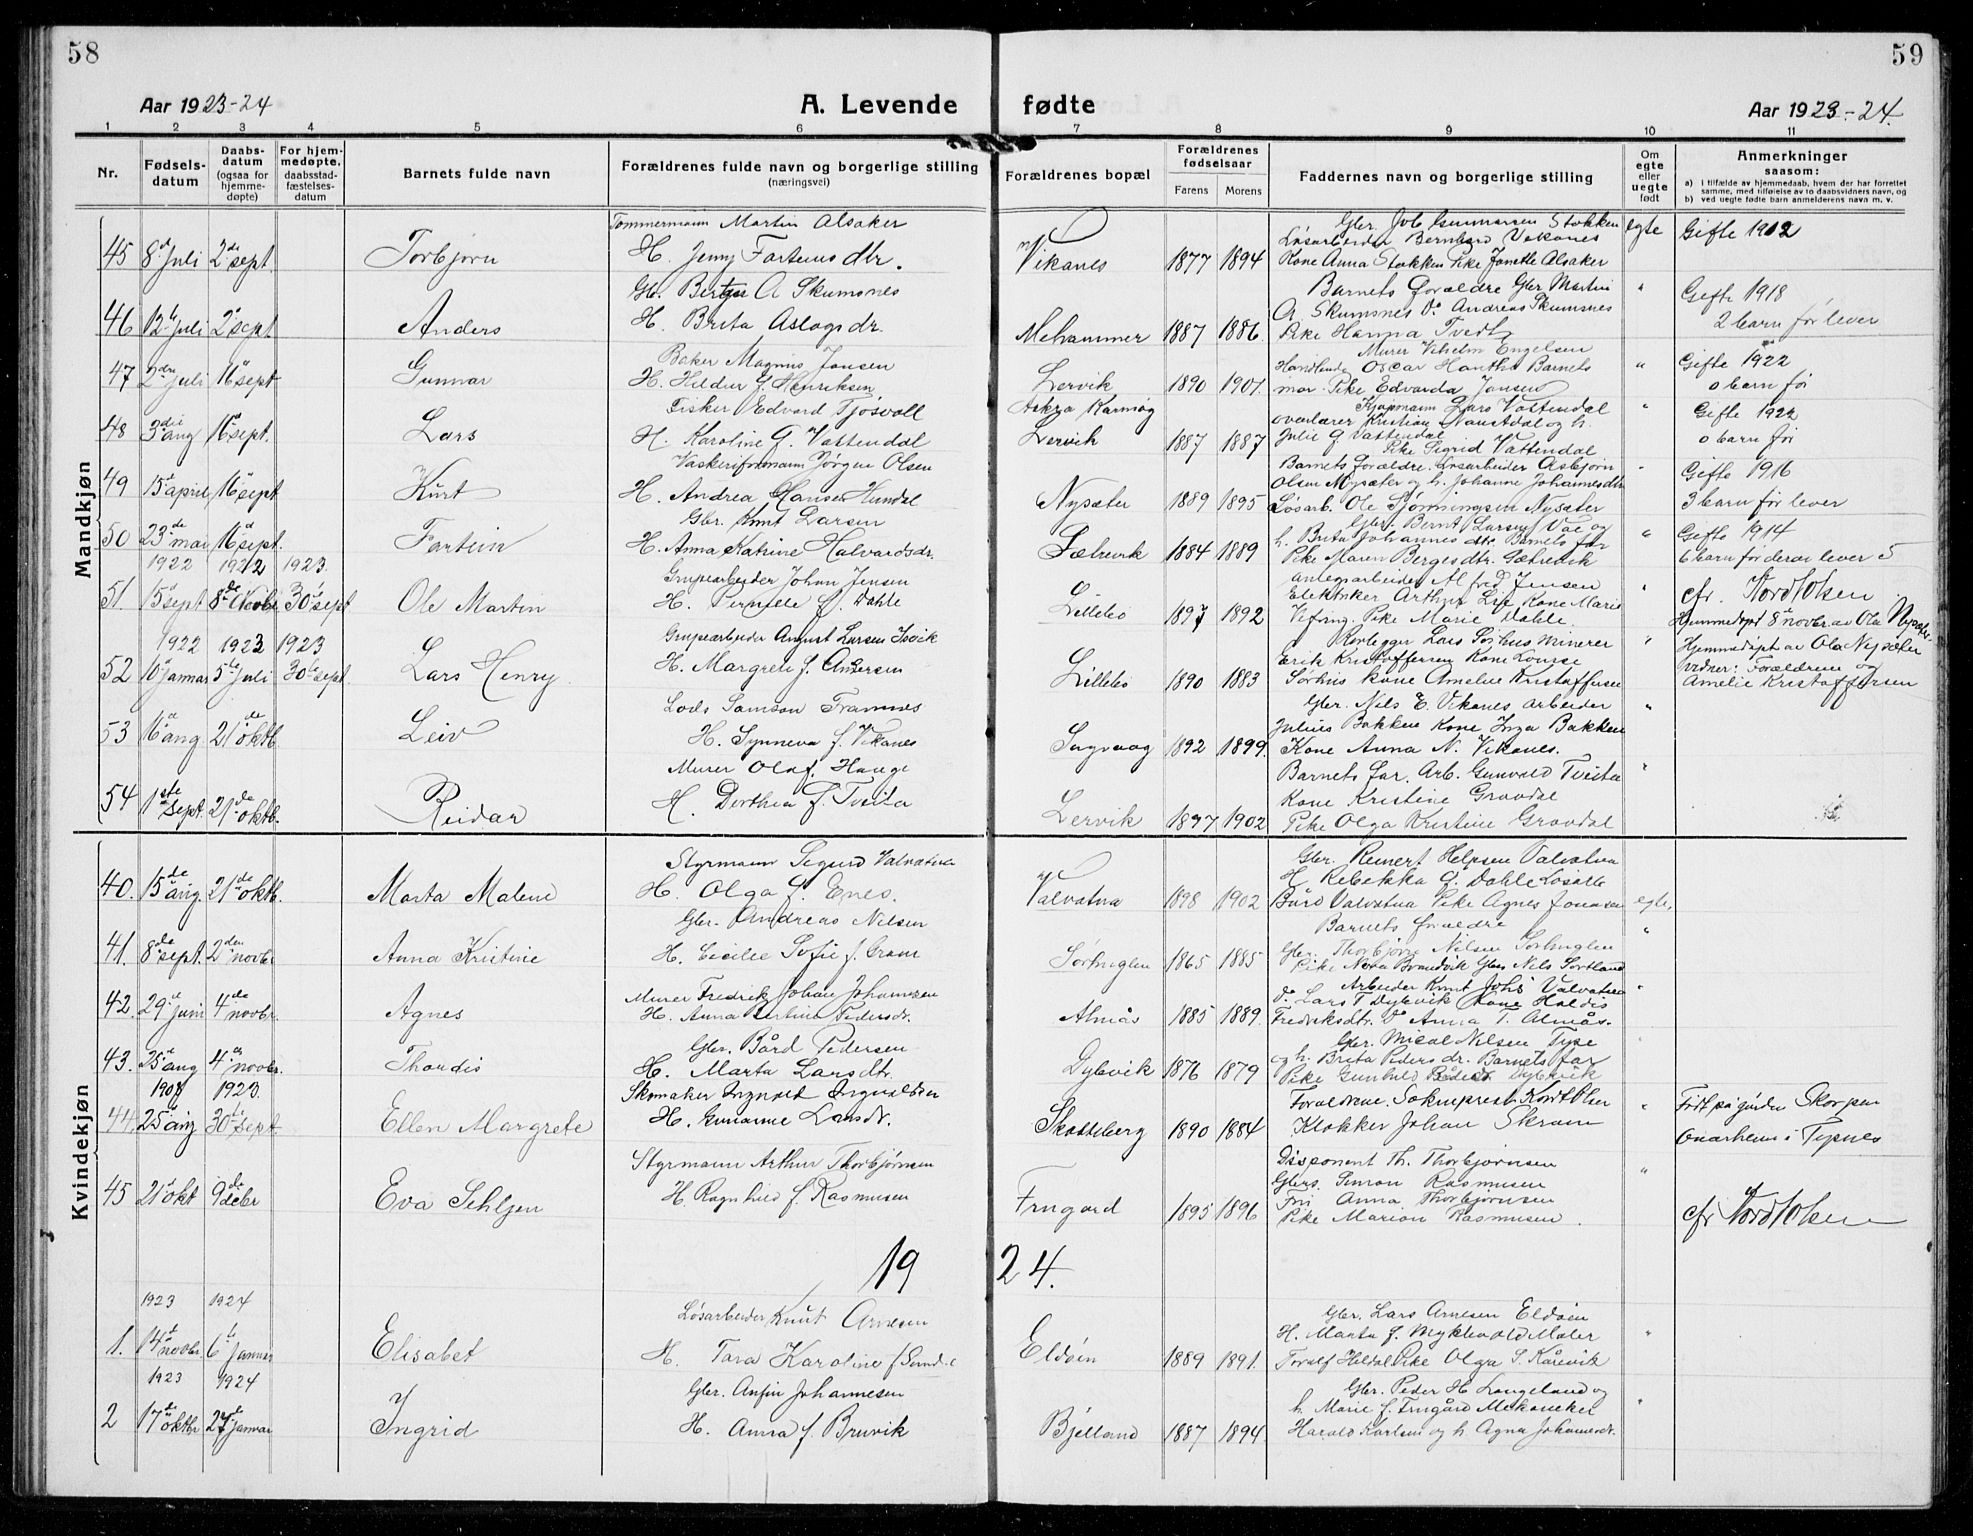 58
59
Aar 1923-24
A. Levende fødte
Aar 1923-24.
1 2 3 4 5 6 7 8 9 10 11
Nr.
Fødsels-datum
Daabs-datum (ogsaa for hjemme-døpte)
For hjem-medøpte, daabsstad-fæstelses-datum
Barnets fulde navn
Forældrenes fulde navn og borgerlige stilling (næringsvei)
Forældrenes bopæl
Forældrenes fødselsaar
Farens Morens
Faddernes navn og borgerlige stilling
Om egte eller uegte født
Anmerkninger saasom:
a) I tilfælde av hjemmedaab, hvem der har forrettet samme, med tilføielse av to daabsvidners navn, og
b) ved uegte fødte barn anmelderens navn m. v.
Mandkjøn
Tømmermann Martin Alsaker
Gbr. Job Gunnarsen Stokken egte Gifte 1912
Løsarbeider Bernhard Vikanes
45 8de Juli 2de sept. Torbjørn H. Jenny Farteinsdtr. Vikanes 1877 1894 Kone Anna Stokken Pike Janette Alsaker
Gbr. A Skumsnes Barnets forældre Gbr Martin " Gifte 1918
A. Skumsnes Do Andreas Skumsnes
46 12te Juli 2de sept. Anders H. Brita Aslagsdr. Mehammer 1887 1886 Pike Hanna Tvedt 2 barn før lever
Baker Magnus Jansen Murer Vilhelm Engelsen
47 2den Juli 16de sept Gunnar H. Hildur f. Henriksen Lervik 1890 1901 Handlende Oscar Barnets " Gifte 1922
mor. Pike Edvarda Jansen 0 barn før
Fisker Edvard Tjøsvoll Karmøy Kjøpmann Lars Vattendal " Gifte 1922
48 3die aug 16de sept. Lars H. Karoline G. Vattendal Lervik 1887 1887 overlærer Kristian Naustdal og h.
Julie G. Vattendal 0 barn før
Pike Sigrid Vattendal
Jørgen Olsen Barnets forældre. Løsarbeider Asbjørn " Gifte 1916
49 15de april 16de sept Kurt H. Andrea Hansen Hundal Nysæter 1889 1895 Olsen Nysæter og h. Johanne Johannesdtr
Løsarb. Ole Nysæter 3 barn før lever
Gbr. Knut Larsen Gbr. Bernt Larsen og " Gifte 1914
50 23de mai 16de sept. Fartein H. Anna Katrine Halvardsdr. Sætrevik 1884 1889 h. Brita Johannesdtr Barnets far
Pike Maren Bergesdtr. Sætrevik 6 barn før derav lever 5
1922 1922 1923.
Grupearbeider Johan Jensen Anlegsarbeider Alfred Jensen "
51. 15de sept 8de Novbr 30te sept Ole Martin H. Pernille f. Dahle Lillebø 1897 1892 Elektriker Arthur Lie Kone Marie cfr. Kordt Olsen
Pike Marie Dahle. Hjemmedøpt 8de novbr. av Ola Nysæter
1922 1923 1923
August Larsen Lars Sørhus minerer " Hjemmedøpt av Ola Nysæter
52 10de januar 5te Juli 30te sept. Lars Henry H. Margrete f. Andersen Lillebø 1890 1883 Erik Kristoffersen Kone Lovise vidner: Forældrene og
Sørhus kone Amelie Kristoffersen Amelie Kristoffersen
Lods Samson Framnes Gbr. Nils E. Vikanes arbeider "
53 16de aug. 21de oktb. Leiv H. Synneva f. Vikanes Sagvaag 1892 1899. Julius Bakken Kone Inga Bakken
Kone Anna N. Vikanes.
Murer Olaf Hauge Barnets far. Arb. Gunvald Tveita "
54 1ste sept. 21de oktb. Reidar H. Dorthea f. Tveita Lervik 1897 1902 Kone Kristine Gravdal
Pike Olga Kristine Gravdal
Kvindekjøn
Styrmann Sigurd Valvatna Gbr. Reinert Valvatna
40. 15de aug. 21de oktb. Marta Malene H. Olga f. Enes. Valvatna 1898 1902 H. Rebekka G. Dahle
Bård Valvatna Pike Agnes egte,
Gbr. Andreas Nilsen Barnets forældre "
41. 8de sept. 2den novbr Anna Kristine H. Cicilie Sofie f. Sørhuglen 1865 1885 Gbr. Nilsen Sørhuglen
Pike Brandvik Gbr Nils Sortland
Murer Fredrik Johan Johannesen Arbeider Knut Johs Valvatna "
42. 29de juni 4de novbr. Agnes H. Anna Pedersdr. Almås 1885 1889. Do. Lars T Dybevik Kone Haldis
Fredriksdtr. Do Anna T. Almås.
Gbr. Bård Pedersen Gbr. Mical Nilsen
43. 25de aug 4de novbr. Thordis H. Marta Larsdtr. Dybevik 1876 1879 og h. Brita Pedersdr. Barnets far
Pike Gunhild Dybevik
1907 1923.
Skomaker Ingvald Ingvaldsen Forældrene. Sokneprest Kordt Olsen " Født på gården Skorpen
44. 25de aug 30te sept. Ellen Margrete H. Larsdr. Skatteberg 1890 1884 Klokker Johan Skram Onarheim i Tysnes
Styrmann Arthur Thorbjørnsen Disponent Th. Thorbjørnsen "
45 21de okt 9de debr Eva Sehljen H. Ragnhild f. Rasmusen Frugard 1895 1896 Gbrs. Simon Rasmusen
Fru Anna Thorbjørnsen
Pike Marion Rasmusen. cfr Kordt Olsen
1924.
1923 1924
Løsarbeider Knut Arnesen Gbr. Lars Arnesen Eldøen
1. 14de novbr. 6te januar Elisabet H. Tara Karoline f Eldøen 1889 1891. H. Marta f. Myklevold Maler "
Toralf Heldal Pike Olga S. Kårevik
1923 1924
Gbr. Anfin Johannesen Gbr. Peder H Langeland og
2 17de oktbr 27de januar Ingrid H. Anna f. Bruvik Bjelland 1887 1894. h. Marie f. Frugård Mekaniker "
Harald Karlsen og h. Agna Johannesdr.